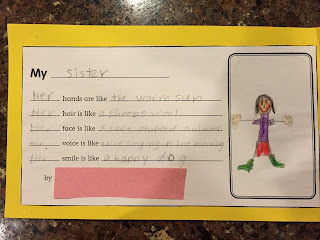 My sister
Her hands are like the warm sun
Her hair is like a sheeps wool
Her face is like a
Her voice is like singing in the morning
Her smile is like a happy dog
by